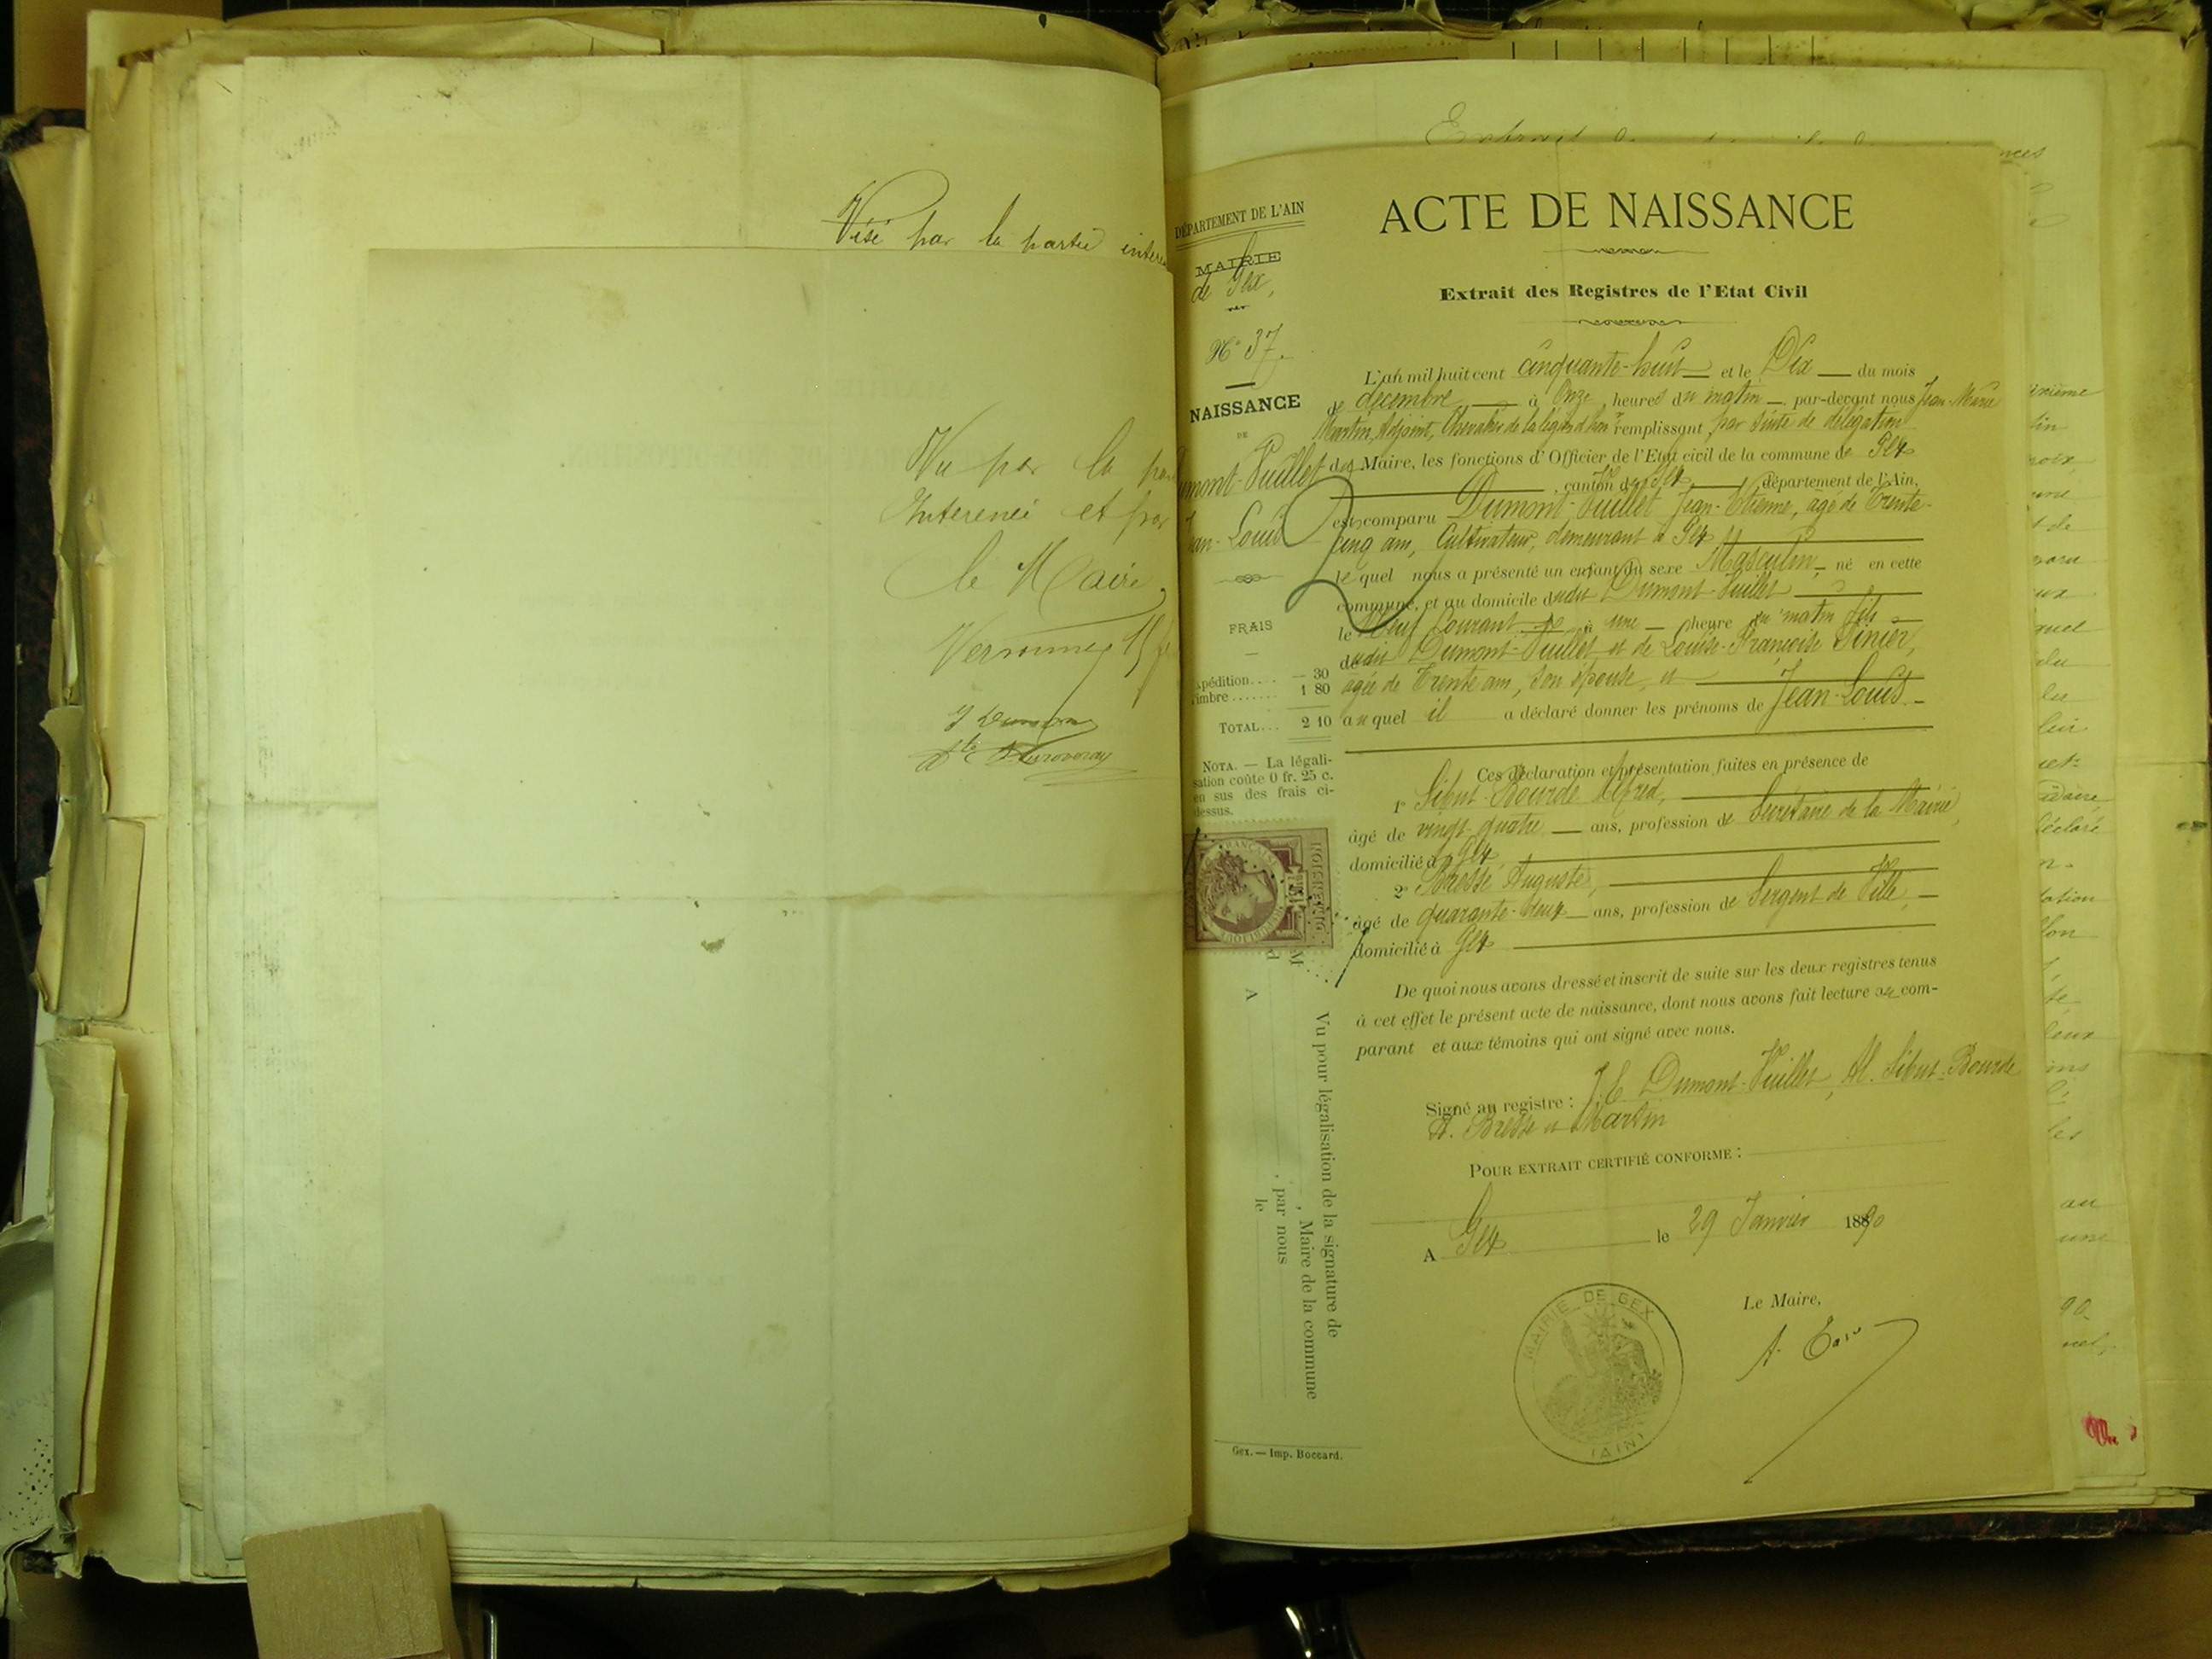 Visé par la partie
Vu par la
et par
le Maire
DÉPARTEMENT DE L'AIN
MAIRIE
de Gex,
N° 37.
NAISSANCE
DE
Dumont-Vuillet
Jean-Louis
FRAIS
Expédition.... — 30
Timbre....... 1 80
TOTAL... 2 10
NOTA. — La légali-
sation coûte 0 fr. 25 c.
en sus des frais ci-
dessus.
Vu pour légalisation de la signature de
, Maire de la commune
, par nous
le
A
Gex. — Imp. Boccard.
ACTE DE NAISSANCE
Extrait des Registres de l'Etat Civil
L'an mil huit cent cinquante-huit et le Dix du mois
de décembre à Onze heures du matin par-devant nous Jean-Marie
Martin, Adjoint, Chevalier de la légion d'hon remplissant, par suite de délégation
du Maire, les fonctions d'Officier de l'Etat civil de la commune de Gex
, canton de Gex département de l'Ain,
est comparu Dumont-Vuillet Jean-Etienne, agé de Trente-
cinq ans, Cultivateur, demeurant à Gex
le quel nous a présenté un enfant du sexe Masculin, né en cette
commune, et au domicile dudit Dumont-Vuillet
le Neuf Courant à une heure du matin fils
dudit Dumont-Vuillet, et de Louise-Françoise
agée de Trente ans, son épouse, et
auquel il a déclaré donner les prénoms de Jean-Louis.
Ces déclaration et présentation faites en présence de
1° Sibut-Bourde Alfred,
âgé de vingt-quatre ans, profession de Secrétaire de la Mairie,
domicilié à Gex
2° Brosse Auguste,
âgé de quarante-deux ans, profession de Sergent de Ville,
domicilié à Gex
De quoi nous avons dressé et inscrit de suite sur les deux registres tenus
à cet effet le présent acte de naissance, dont nous avons fait lecture au com-
parant et aux témoins qui ont signé avec nous.
Signé au registre : J. E Dumont-Vuillet, Al. Sibut-Bourde
A. Brosse et Martin
POUR EXTRAIT CERTIFIÉ CONFORME :
A Gex le 29 Janvier 1890
Le Maire,
MAIRIE DE GEX
(AIN)